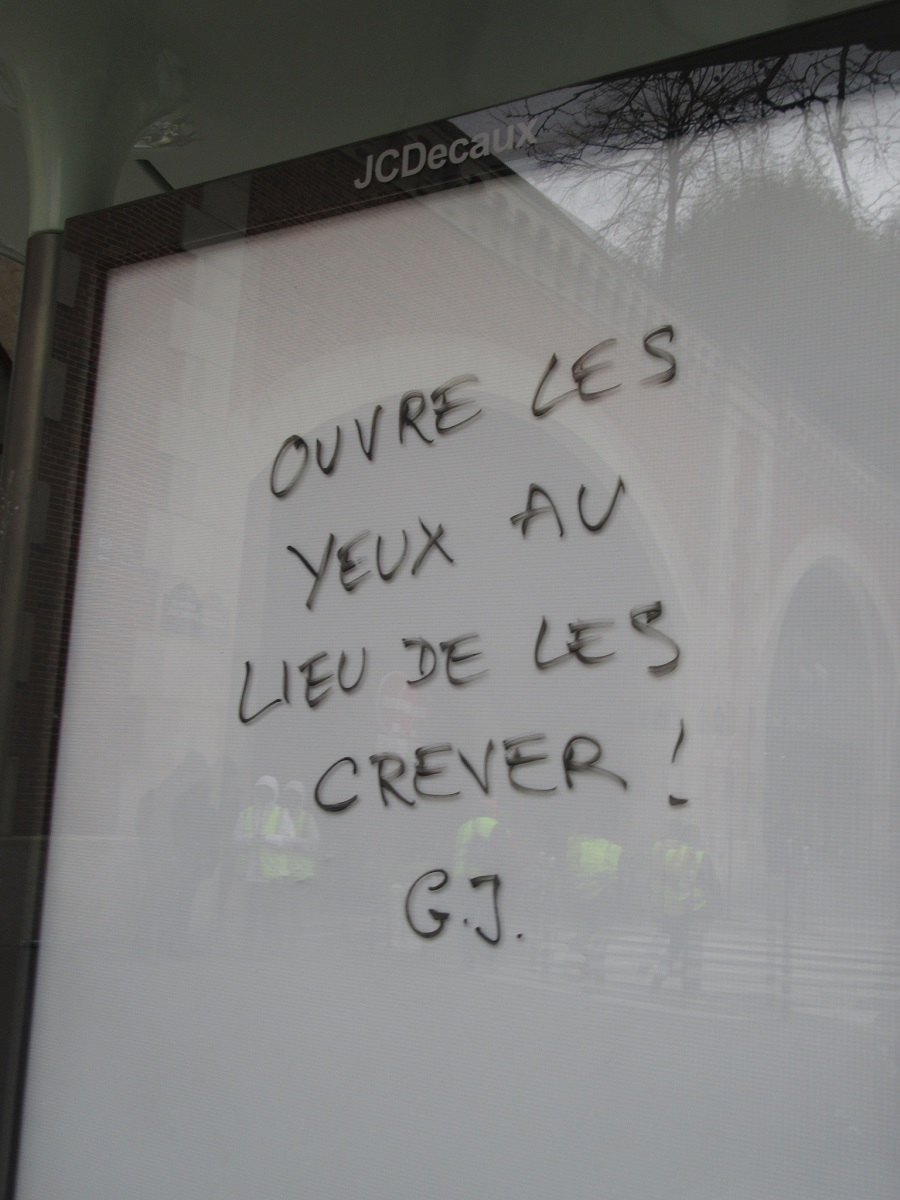 JCDecaux
OUVRE LES
YEUX AU
LIEU DE LES
CREVER !
G.J.